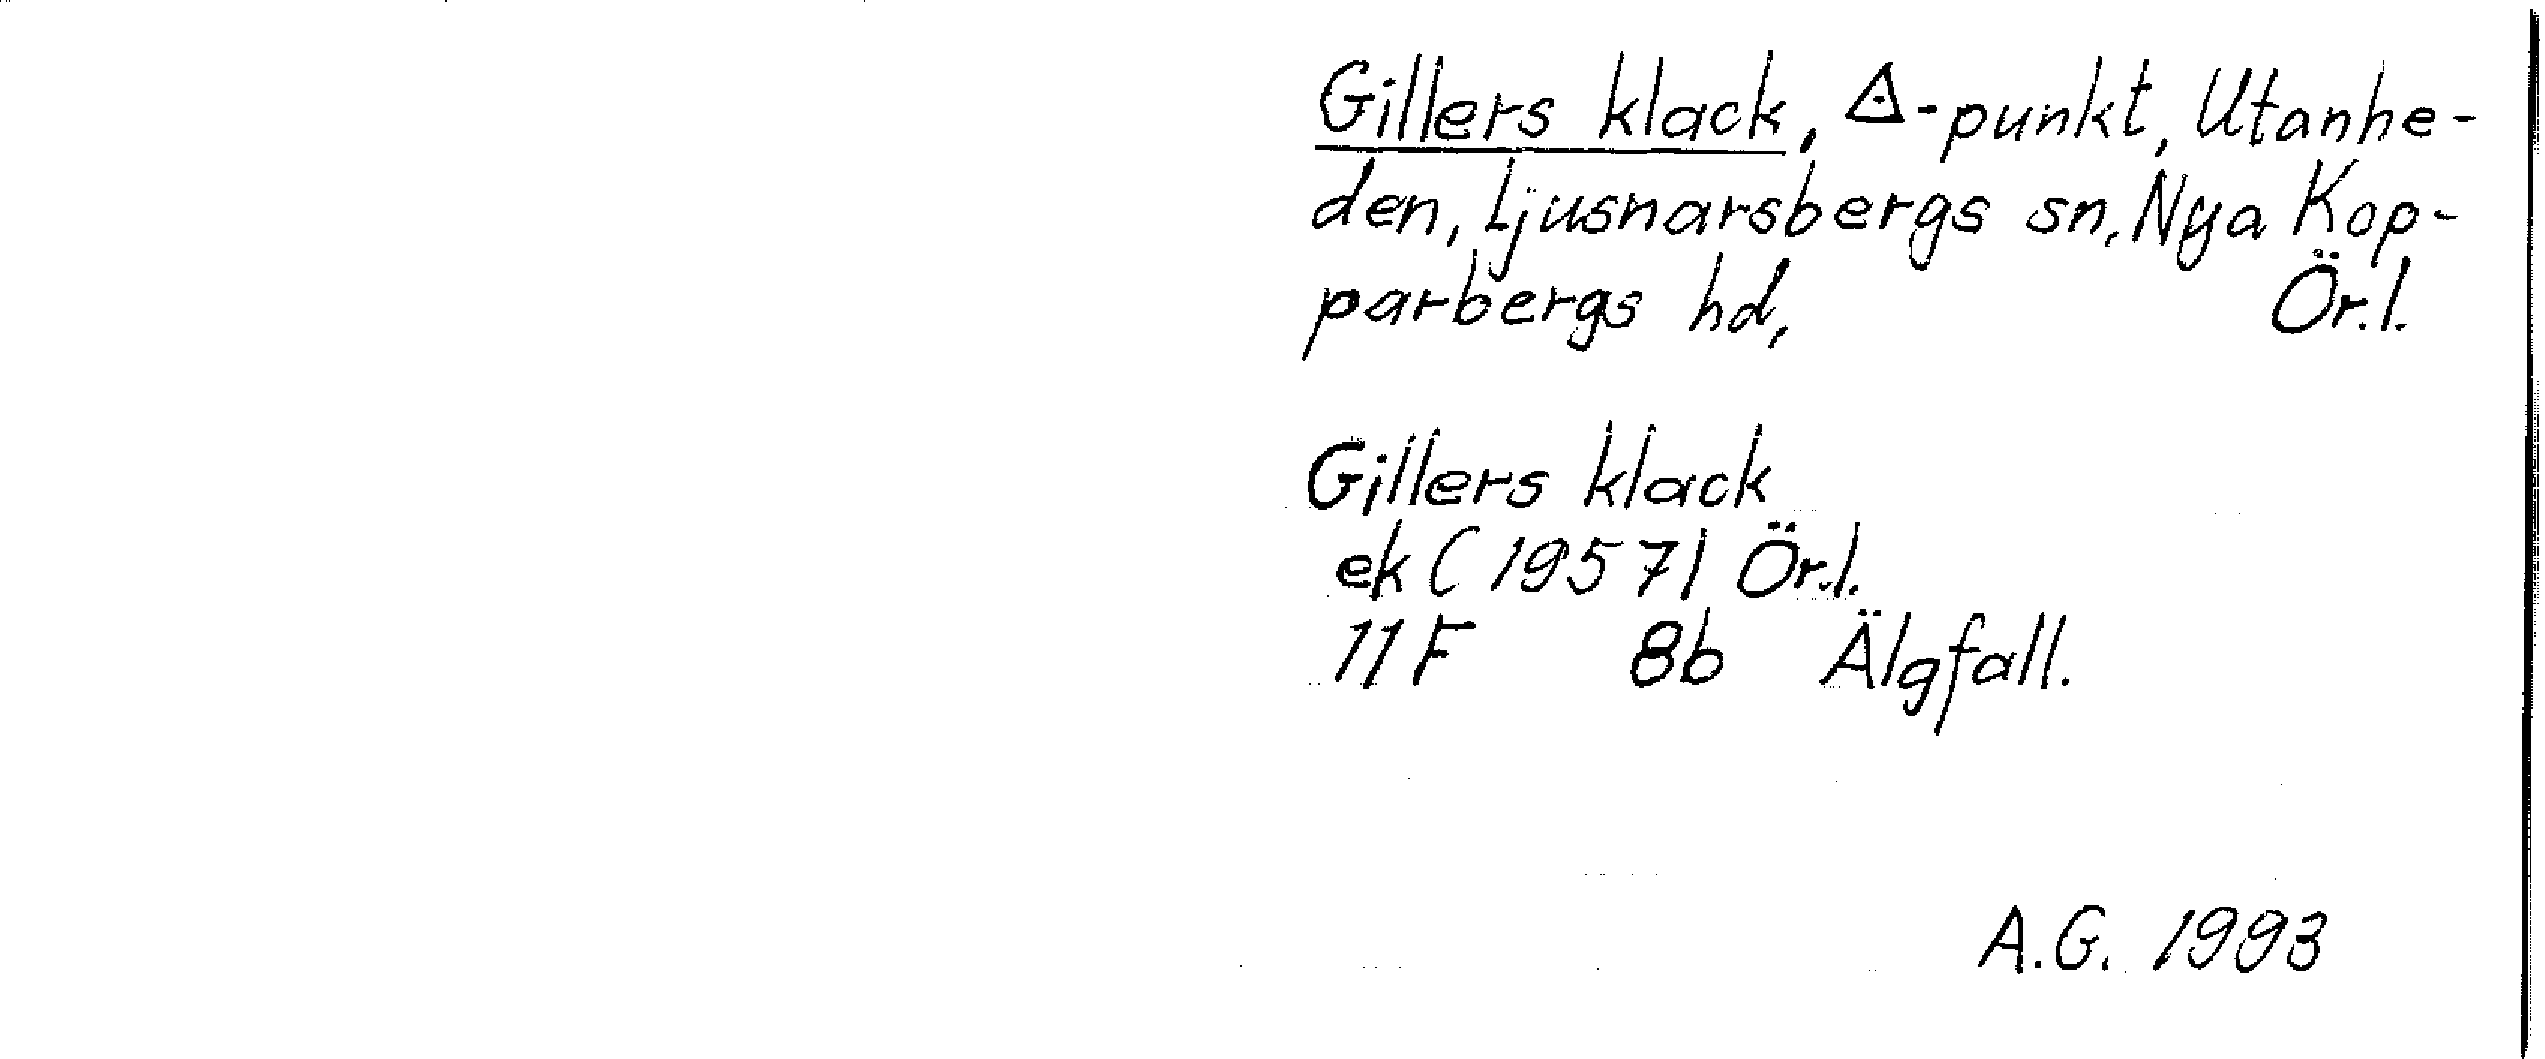 Gillers klack, ◬-punkt, Utanhe-
den, Ljusnarsbergs sn, Nya Kop-
parbergs hd, Ör.l.
Gillers klack
ek (1957) Ör.l.
11F 8b Älgfall.
A.G. 1993